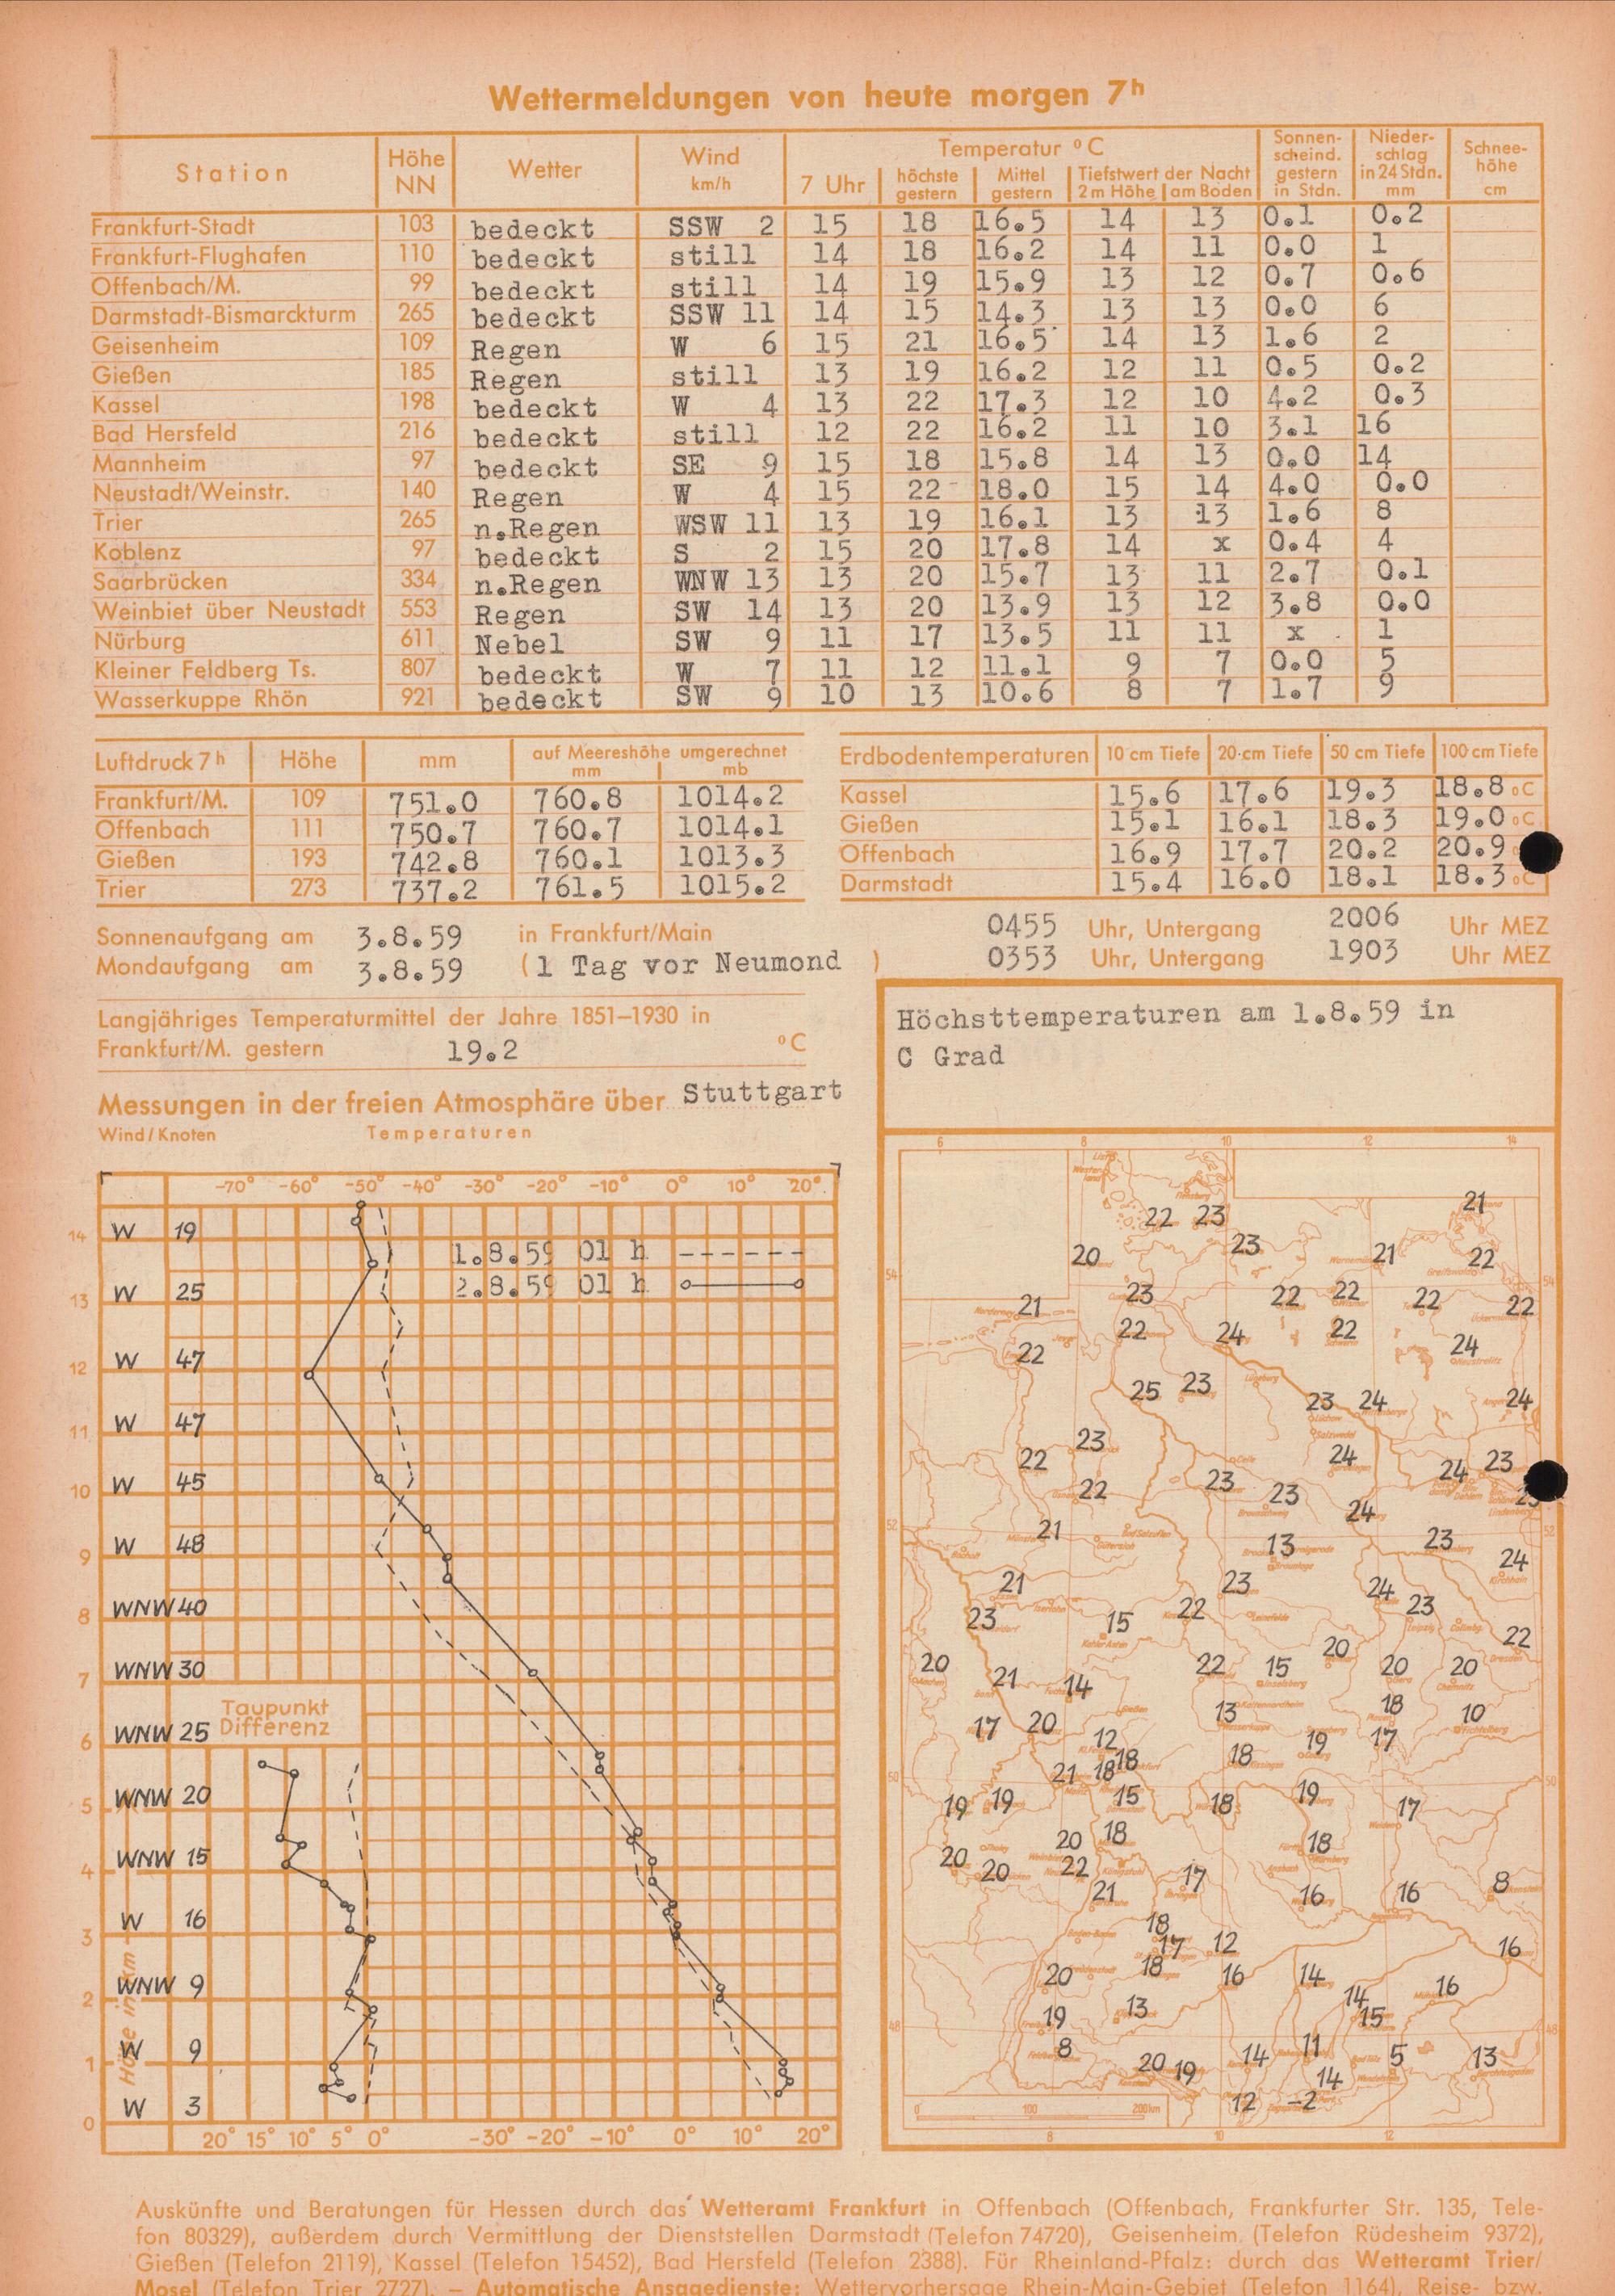 Wettermeldungen von heute morgen 7h
Station Höhe NN Wetter Wind km/h Temperatur °C Sonnen- scheind. gestern in Stdn. Nieder- schlag in 24 Stdn. mm Schnee- höhe cm
7 Uhr höchste gestern Mittel gestern Tiefstwert der Nacht 2 m Höhe am Boden
Frankfurt-Stadt 103 bedeckt SSW 2 15 18 16.5 14 13 0.1 0.2
Frankfurt-Flughafen 110 bedeckt still 14 18 16.2 14 11 0.0 1
Offenbach/M. 99 bedeckt still 14 19 15.9 13 12 0.7 0.6
Darmstadt-Bismarckturm 265 bedeckt SSW 11 14 15 14.3 13 13 0.0 6
Geisenheim 109 Regen W 6 15 21 16.5 14 13 1.6 2
Gießen 185 Regen still 13 19 16.2 12 11 0.5 0.2
Kassel 198 bedeckt W 4 13 22 17.3 12 10 4.2 0.3
Bad Hersfeld 216 bedeckt still 12 22 16.2 11 10 3.1 16
Mannheim 97 bedeckt SE 9 15 18 15.8 14 13 0.0 14
Neustadt/Weinstr. 140 Regen W 4 15 22 18.0 15 14 4.0 0.0
Trier 265 n.Regen WSW 11 13 19 16.1 13 13 1.6 8
Koblenz 97 bedeckt S 2 15 20 17.8 14 x 0.4 4
Saarbrücken 334 n.Regen WNW 13 13 20 15.7 13 11 2.7 0.1
Weinbiet über Neustadt 553 Regen SW 14 13 20 13.9 13 12 3.8 0.0
Nürburg 611 Nebel SW 9 11 17 13.5 11 11 x 1
Kleiner Feldberg Ts. 807 bedeckt W 7 11 12 11.1 9 7 0.0 5
Wasserkuppe Rhön 921 bedeckt SW 9 10 13 10.6 8 7 1.7 9
Luftdruck 7h Höhe mm auf Meereshöhe umgerechnet mm mb
Frankfurt/M. 109 751.0 760.8 1014.2
Offenbach 111 750.7 760.7 1014.1
Gießen 193 742.8 760.1 1013.3
Trier 273 737.2 761.5 1015.2
Erdbodentemperaturen 10 cm Tiefe 20 cm Tiefe 50 cm Tiefe 100 cm Tiefe
Kassel 15.6 17.6 19.3 18.8 °C
Gießen 15.1 16.1 18.3 19.0 °C
Offenbach 16.9 17.7 20.2 20.9
Darmstadt 15.4 16.0 18.1 18.3 °C
Sonnenaufgang am 3.8.59 in Frankfurt/Main 0455 Uhr, Untergang 2006 Uhr MEZ
Mondaufgang am 3.8.59 (1 Tag vor Neumond ) 0353 Uhr, Untergang 1903 Uhr MEZ
Langjähriges Temperaturmittel der Jahre 1851–1930 in
Frankfurt/M. gestern 19.2 °C
Messungen in der freien Atmosphäre über Stuttgart
Wind/Knoten Temperaturen
-70° -60° -50° -40° -30° -20° -10° 0° 10° 20°
14 W 19
1.8.59 01 h
2.8.59 01 h
13 W 25
12 W 47
11 W 47
10 W 45
9 W 48
8 WNW 40
7 WNW 30
Taupunkt
Differenz
6 WNW 25
5 WNW 20
4 WNW 15
3 W 16
2 WNW 9
1 W 9
0 W 3
Höhe in km
20° 15° 10° 5° 0° -30° -20° -10° 0° 10° 20°
Höchsttemperaturen am 1.8.59 in
C Grad
6 8 10 12 14
21
22 23
20 23 21 22
54 54
21 23 22 22 22 22
22 22 24 22 24
25 23 23 24 24
22 23 24 24 23
22 23 23 24
52 21 13 23 24 52
21 23 24 23
23 15 22 22
20 21 14 22 15 20 20 20
17 20 13 18 10
12 18 18 19 17
50 21 18 50
19 19 15 18 19 17
20 18 18
20 20 22 17 8
21 16 16
18 17 12 16
20 18 16 14 16
19 13 14 15
48 48
8 20 19 14 11 5 13
12 -2 14
0 100 200 km
8 10 12
Auskünfte und Beratungen für Hessen durch das Wetteramt Frankfurt in Offenbach (Offenbach, Frankfurter Str. 135, Tele-
fon 80329), außerdem durch Vermittlung der Dienststellen Darmstadt (Telefon 74720), Geisenheim (Telefon Rüdesheim 9372),
Gießen (Telefon 2119), Kassel (Telefon 15452), Bad Hersfeld (Telefon 2388). Für Rheinland-Pfalz: durch das Wetteramt Trier/
Mosel (Telefon Trier 2727). — Automatische Ansagedienste: Wettervorhersage Rhein-Main-Gebiet (Telefon 1164), Reise- bzw.